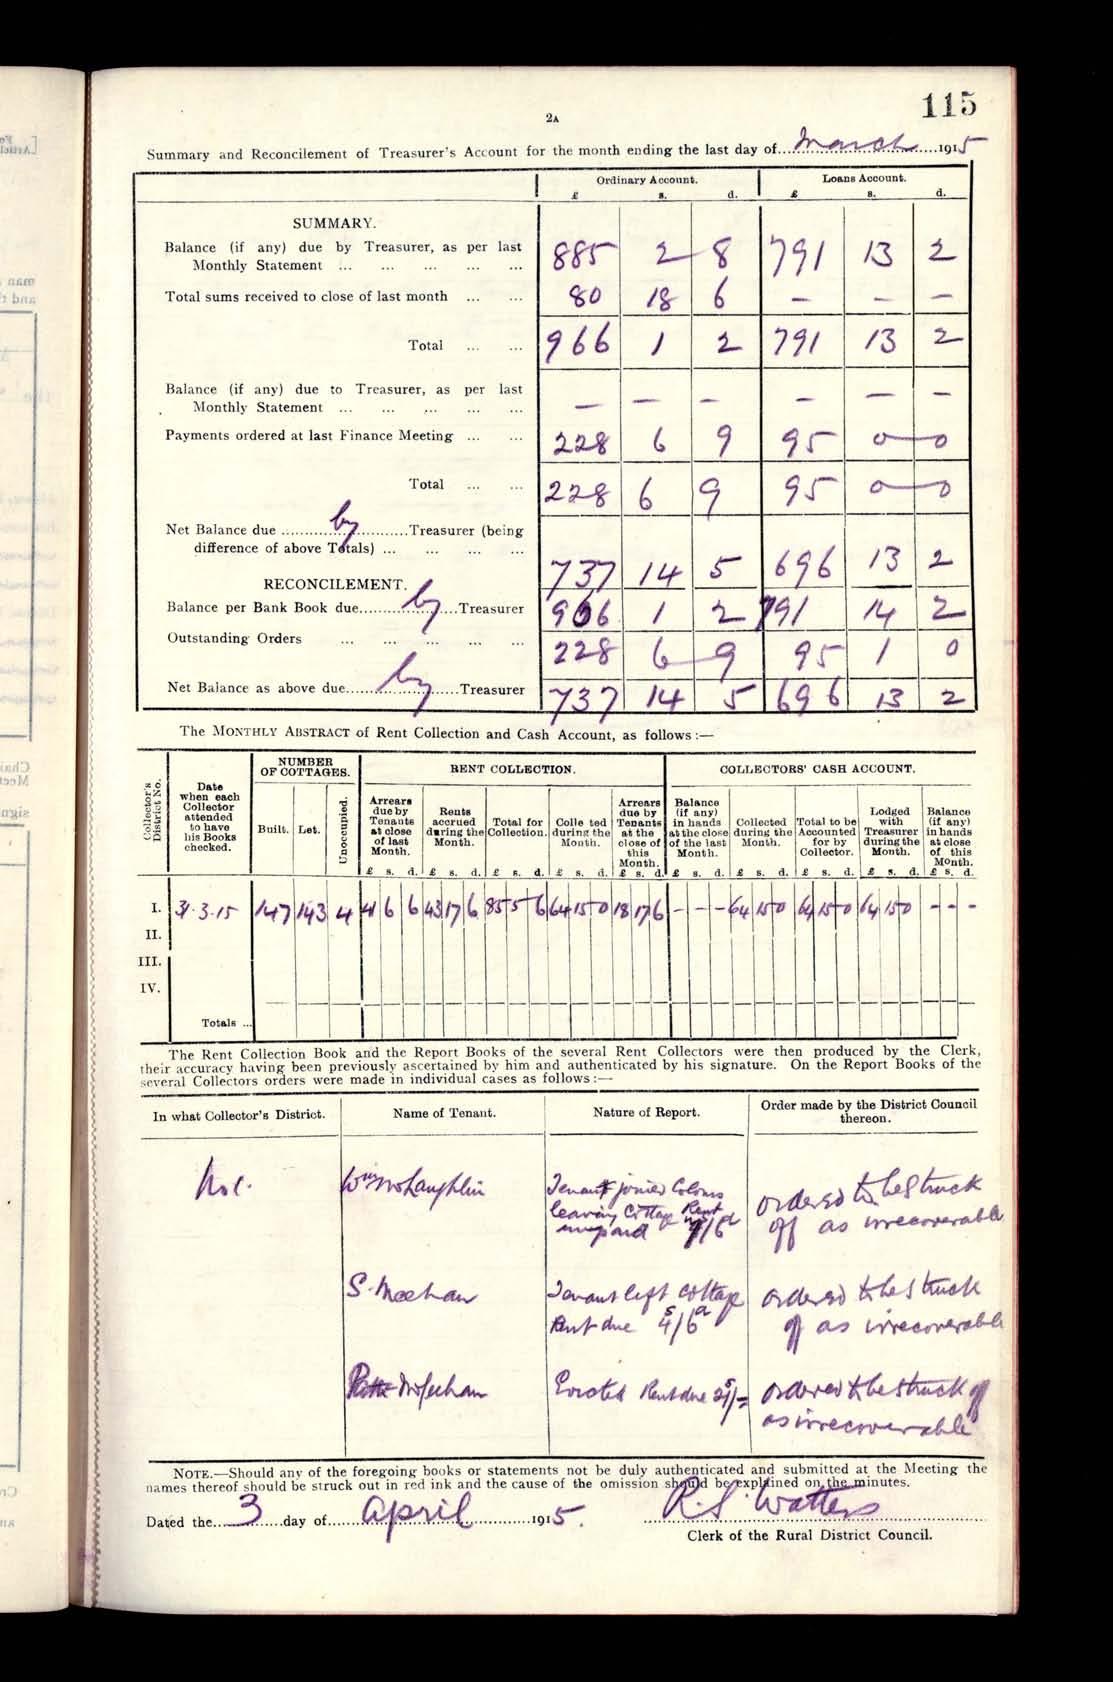 115
2A
Summary and Reconcilement of Treasurer's Account for the month ending the last day of March 1915
Ordinary Account. Loans Account.
£ s. d. £ s. d.
SUMMARY.
Balance (if any) due by Treasurer, as per last
Monthly Statement ... ... ... ... ... 885 2 8 791 13 2
Total sums received to close of last month ... ... 80 18 6 — — —
Total ... ... 966 1 2 791 13 2
Balance (if any) due to Treasurer, as per last
Monthly Statement ... ... ... ... ... — — — — — —
Payments ordered at last Finance Meeting ... ... 228 6 9 95 0 0
Total ... ... 228 6 9 95 0 0
Net Balance due by Treasurer (being
difference of above Totals) ... ... ... ... 737 14 5 696 13 2
RECONCILEMENT.
Balance per Bank Book due by Treasurer 966 1 2 791 14 2
Outstanding Orders ... ... ... ... ... 228 6 9 95 1 0
Net Balance as above due by Treasurer 737 14 5 696 13 2
The MONTHLY ABSTRACT of Rent Collection and Cash Account, as follows:—
Collector's District No.
Date when each Collector attended to have his Books checked.
NUMBER OF COTTAGES.
Built. Let. Unoccupied.
RENT COLLECTION.
Arrears due by Tenants at close of last Month.
Rents accrued during the Month.
Total for Collection.
Colle ted during the Month.
Arrears due by Tenants at the close of this Month.
COLLECTORS' CASH ACCOUNT.
Balance (if any) in hands at the close of the last Month.
Collected during the Month.
Total to be Accounted for by Collector.
Lodged with Treasurer during the Month.
Balance (if any) in hands at close of this Month.
£ s. d. £ s. d. £ s. d. £ s. d. £ s. d. £ s. d. £ s. d. £ s. d. £ s. d. £ s. d.
I. 31.3.15 147 143 4 41 6 6 43 17 6 85 5 6 64 15 0 18 17 6 - - - 64 15 0 64 15 0 64 15 0 - - -
II.
III.
IV.
Totals ...
The Rent Collection Book and the Report Books of the several Rent Collectors were then produced by the Clerk,
their accuracy having been previously ascertained by him and authenticated by his signature. On the Report Books of the
several Collectors orders were made in individual cases as follows:—
In what Collector's District. Name of Tenant. Nature of Report. Order made by the District Council thereon.
Wm McLaughlin
Tenant joined Colours
leaving Cottage Rent
unpaid
ordered to be struck
off as irrecoverable
S. Meehan
Tenant left Cottage
Rent due 4s/6d
ordered to be struck
off as irrecoverable
Evicted Rent due
ordered to be struck off
as irrecoverable
NOTE.—Should any of the foregoing books or statements not be duly authenticated and submitted at the Meeting the
names thereof should be struck out in red ink and the cause of the omission should be explained on the minutes.
Dated the 3 day of April 1915. R. S. Watters
Clerk of the Rural District Council.